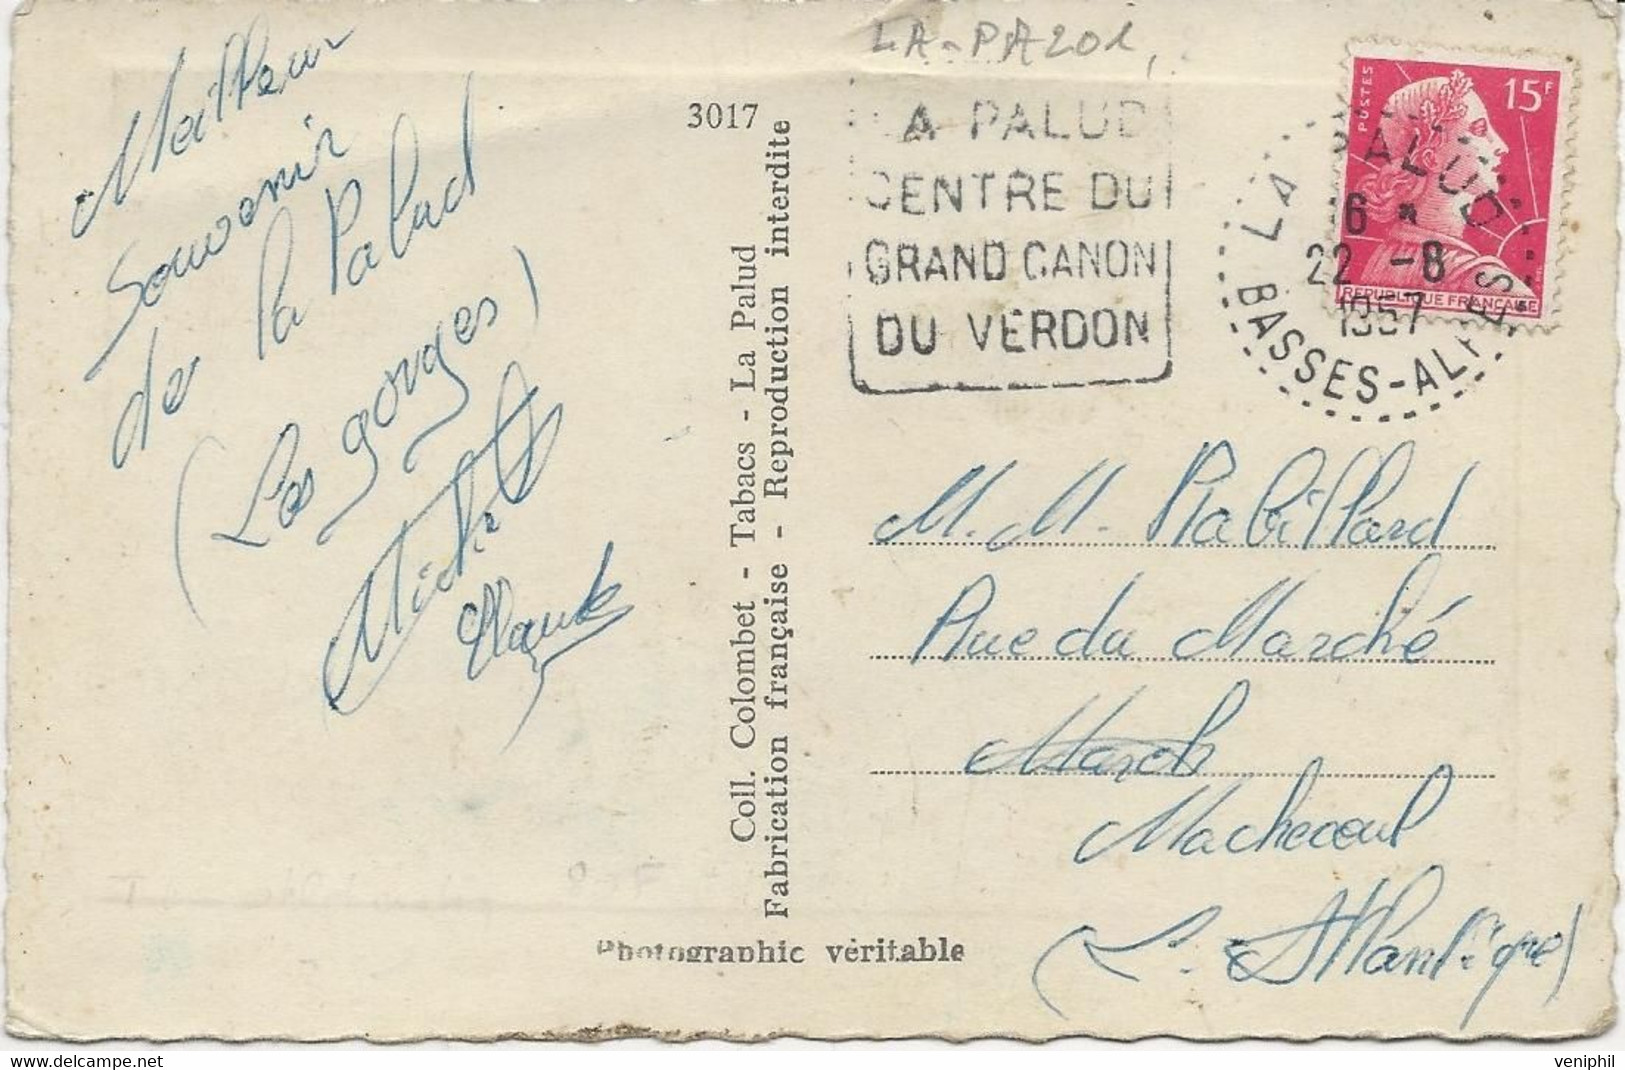 Meilleur
Souvenir
de La Palud
(Les gorges)
3017
Coll. Colombet - Tabacs - La Palud
Fabrication française - Reproduction interdite
Photographic véritable
LA-PA201
A PALUD
CENTRE DU
GRAND CANON
DU VERDON
POSTES
15F
REPUBLIQUE FRANÇAISE
LA PALUD
16
22 -8
1957
BASSES-ALPES
M. M. Rabillard
Rue du Marché
Machecoul
(L. Atlantique)
veniphil